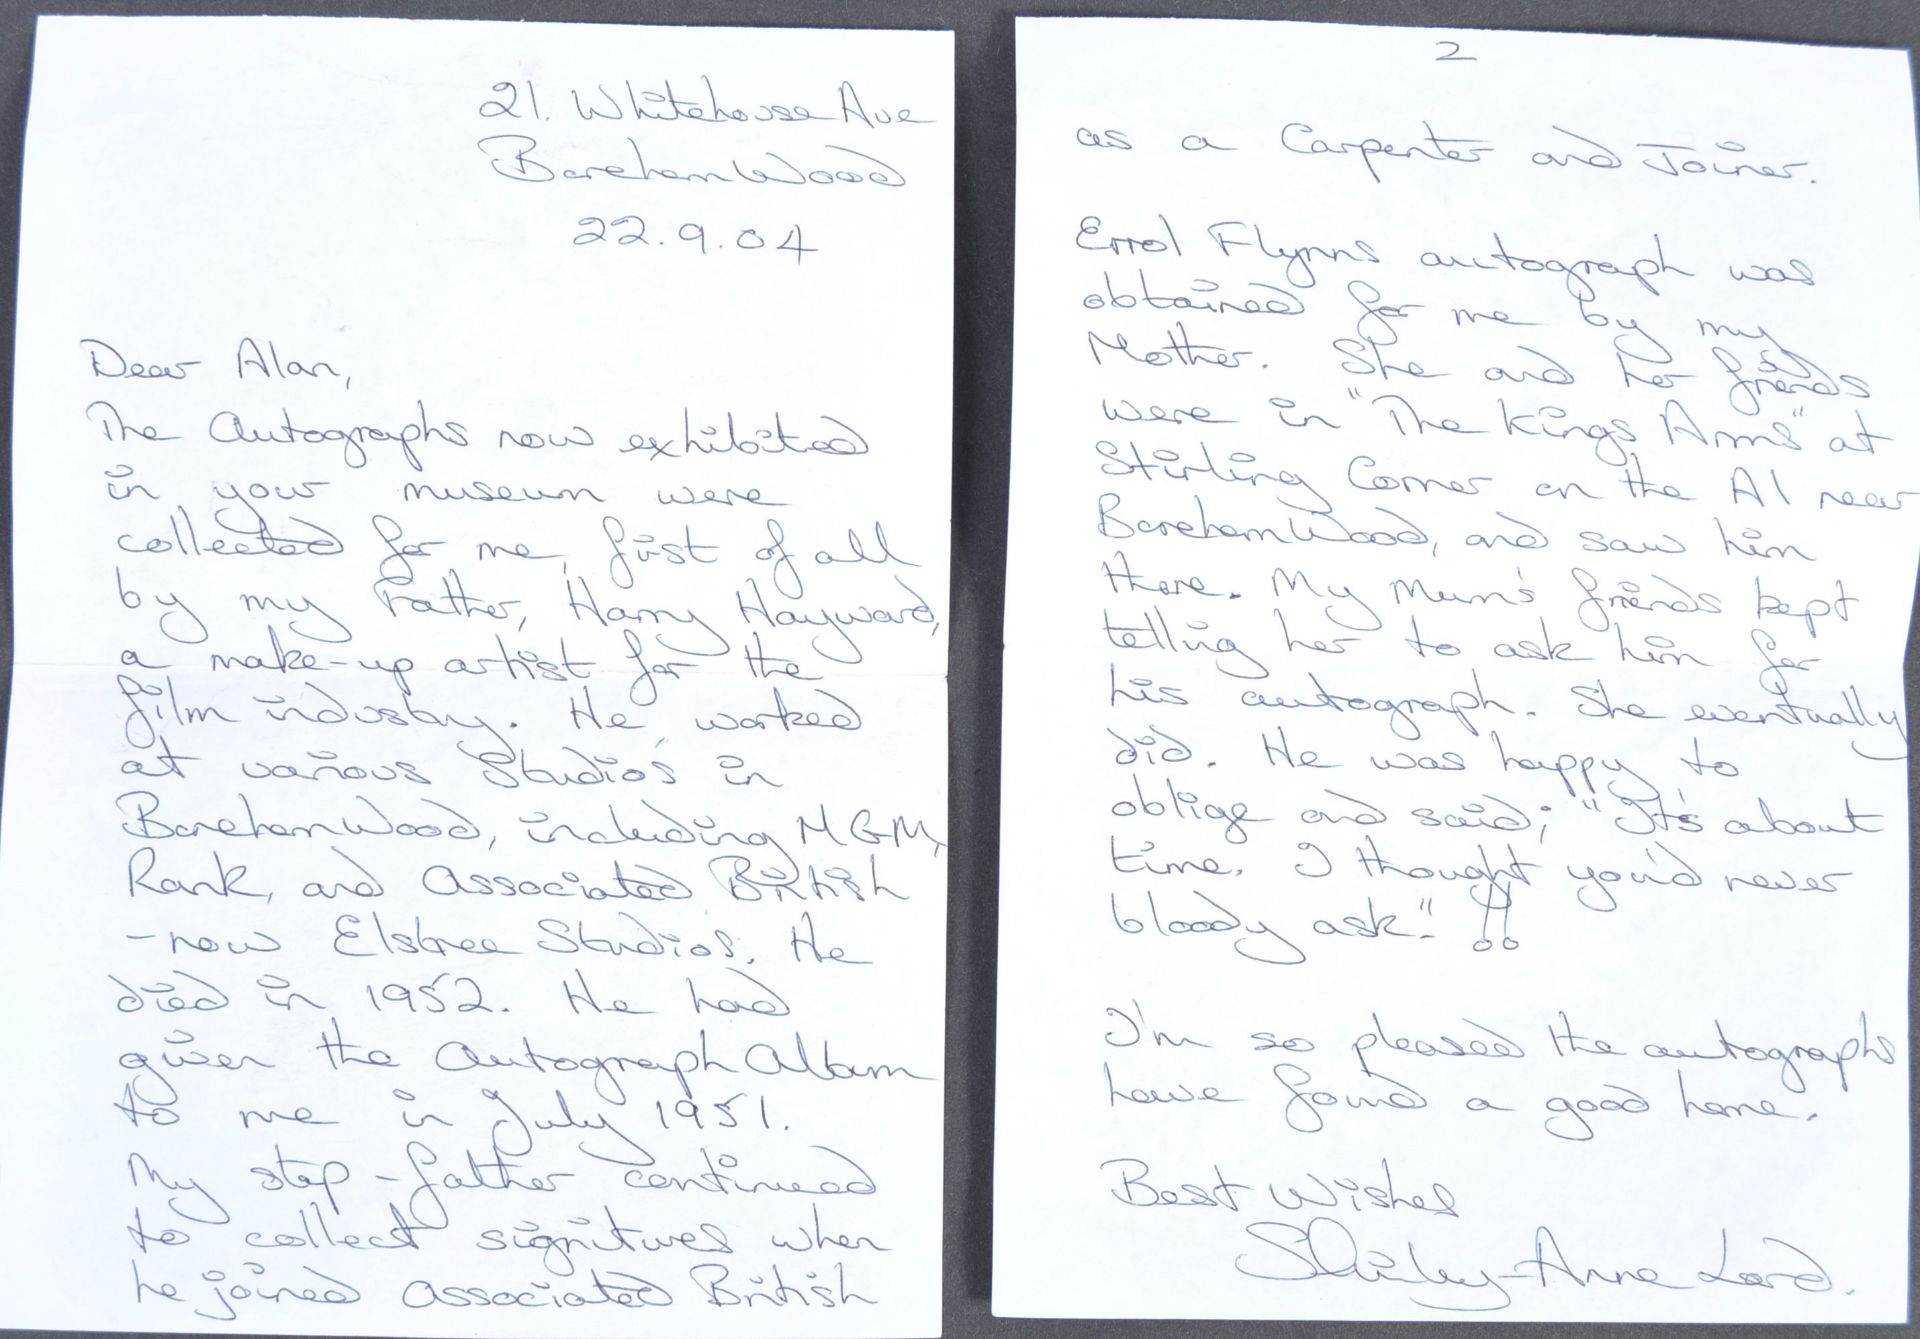 21. Whitehouse Ave
BorehamWood
22.9.04
Dear Alan,
The Autographs now exhibited
in your museum were
collected for me, first of all
by my Father, Harry Hayward,
a make-up artist for the
film industry. He worked
at various Studios in
BorehamWood, including MGM,
Rank, and Associated British
- now Elstree Studios. He
died in 1952. He had
given the Autograph Album
to me in July 1951.
My step-father continued
to collect signitures when
he joined Associated British
2
as a Carpenter and Joiner.
Errol Flynns autograph was
obtained for me by my
Mother. She and her friends
were in "The Kings Arms" at
Stirling Corner on the A1 near
BorehamWood, and saw him
there. My Mum's friends kept
telling her to ask him for
his autograph. She eventually
did. He was happy to
oblige and said; "It's about
time. I thought you'd never
bloody ask." !!
I'm so pleased the autographs
have found a good home.
Best Wishes
Shirley-Anne Lord.